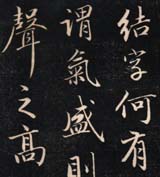 結字何有
謂氣盛則
聲之高